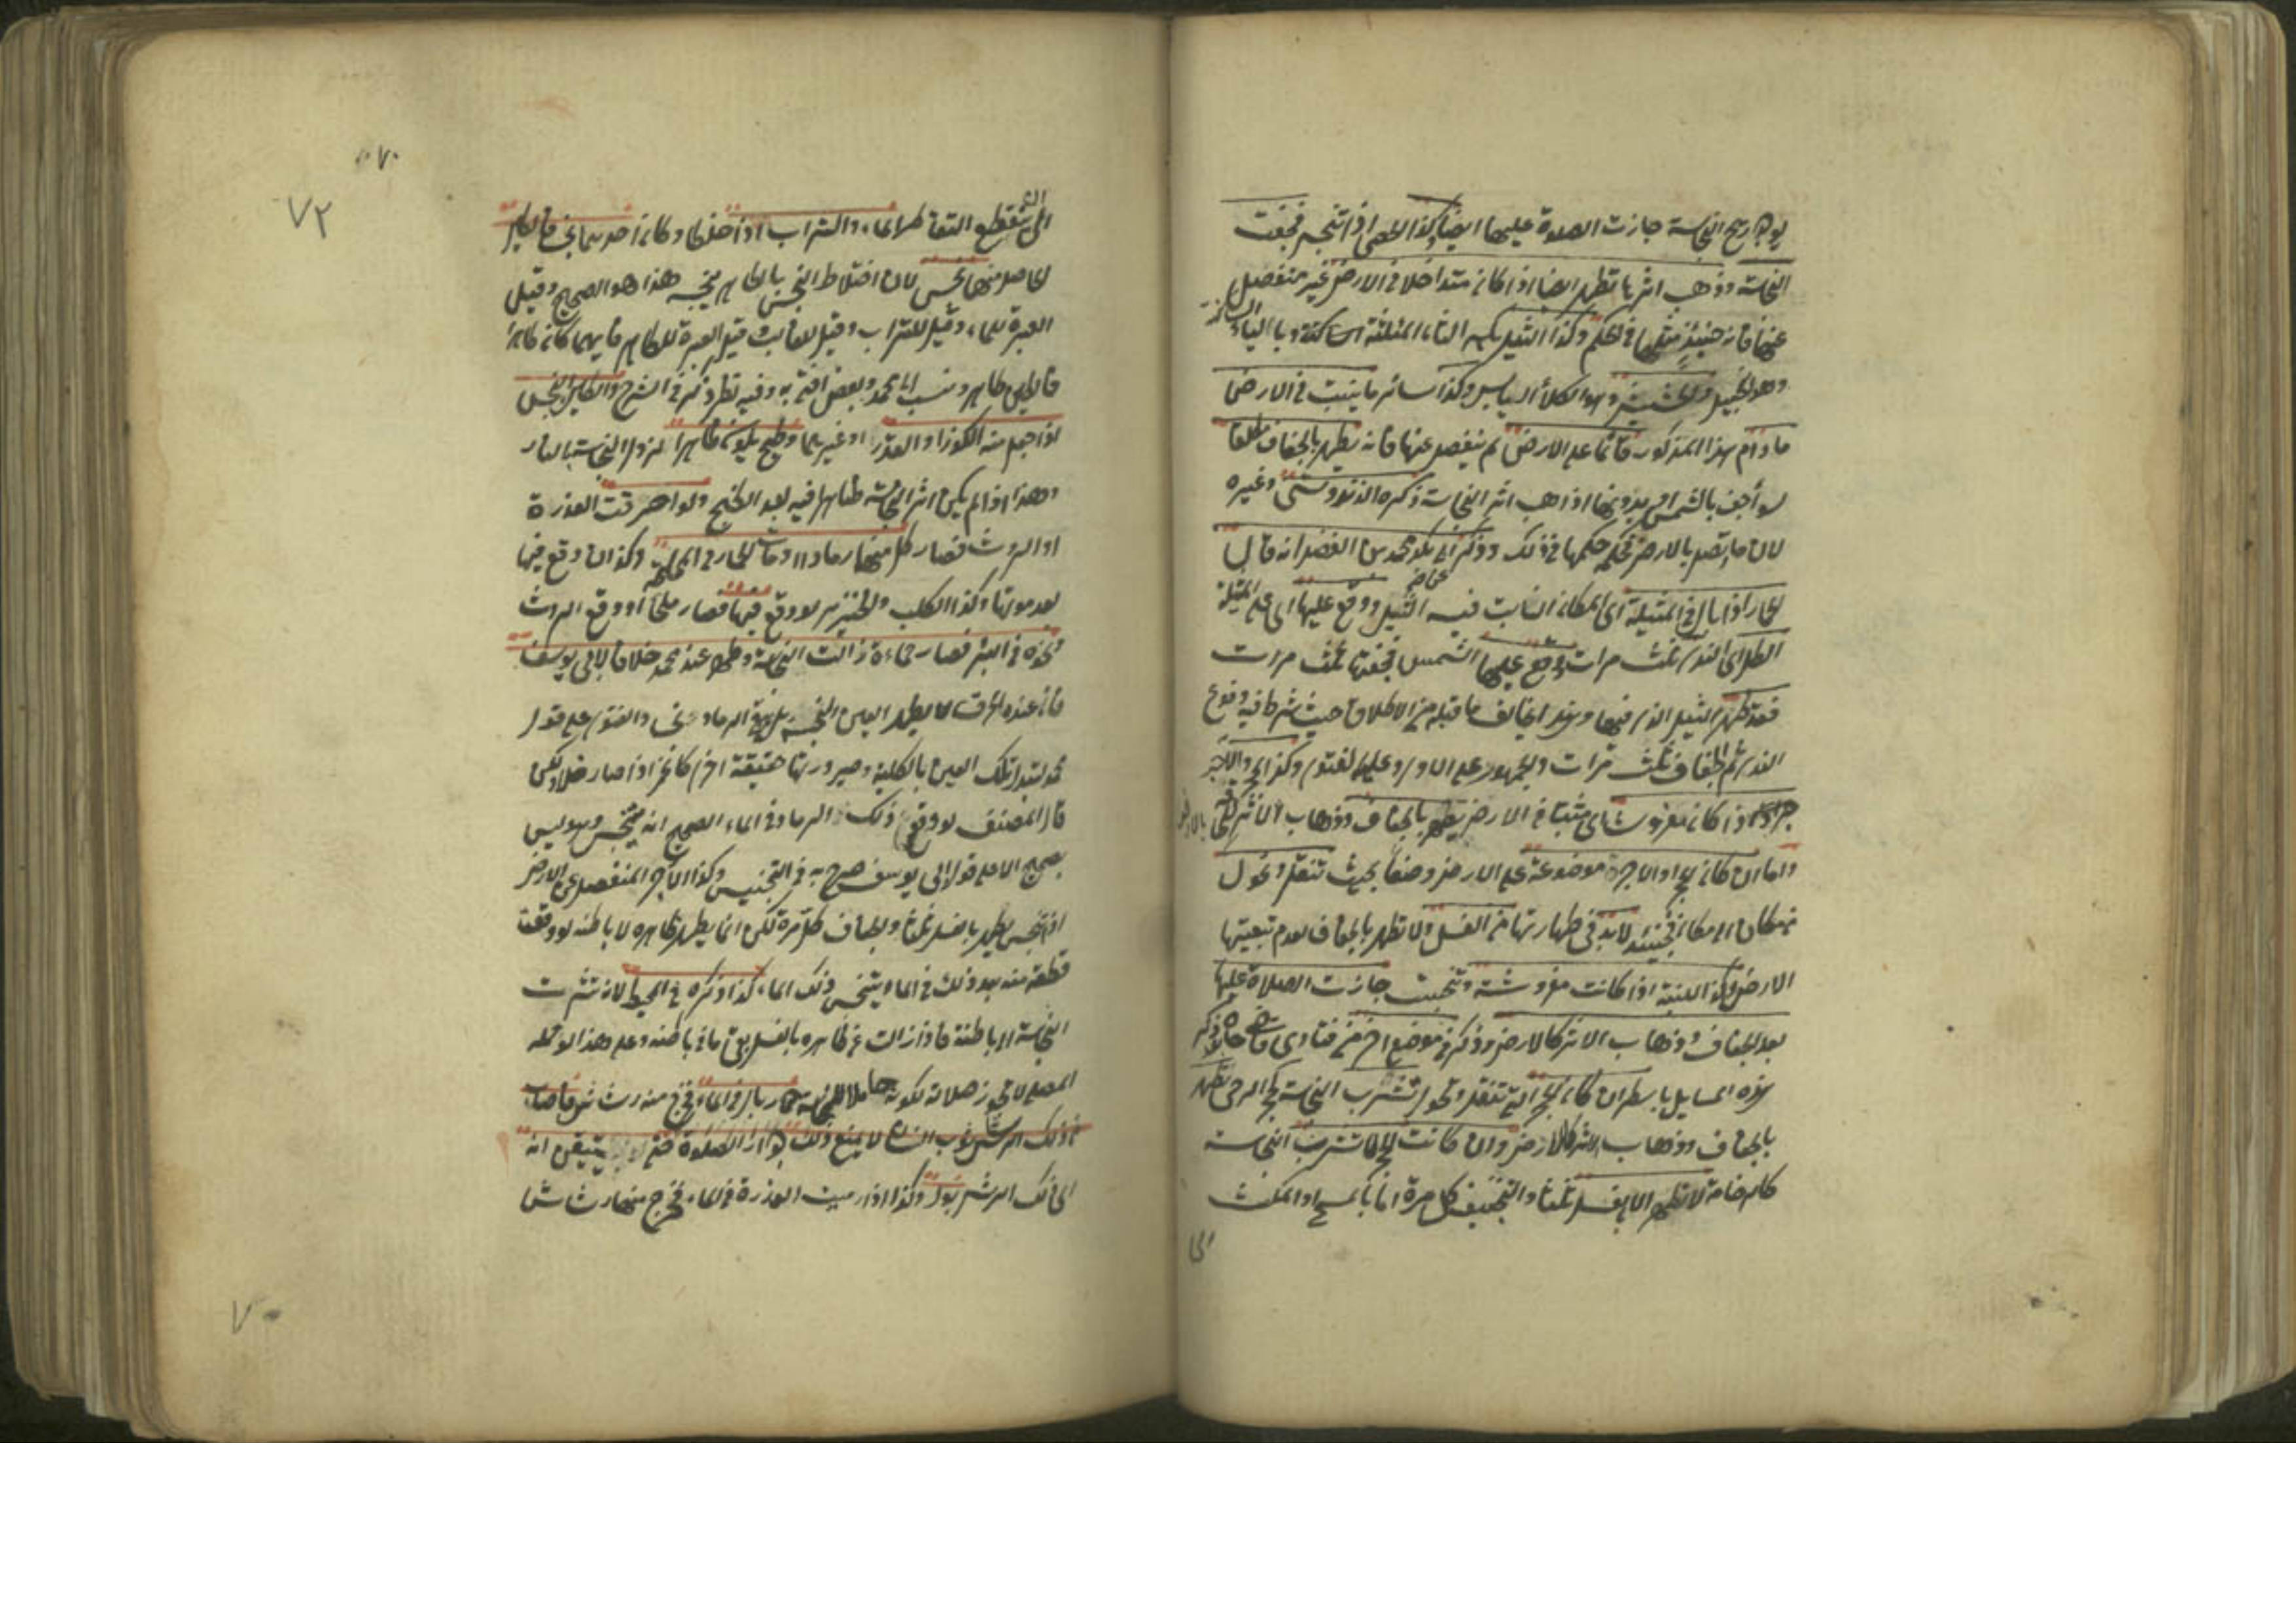 يوجد ريح النجاسة جازت الصلوة عليها ايضا وكذا الحصى اذا تنجس فجفت
النجاسة وذهب اثرها تطهر ايضا اذا كان متداخلا في الارض غير منفصل
عنها فانه حينئذ مثلها في الحكم وكذا الثيل بكسر الثاء المثلثة الساكنة وبالياء
وهو النجيل والحشيش وهو الكلأ اليابس وكذا سائر ما ينبت في الارض
ما دام هذا المذكور قائما على الارض لم ينفصل عنها فانه يطهر بالجفاف مطلقا
سواء جف بالشمس او بدونها اذا ذهب اثر النجاسة ذكره الزندويستي وغيره
لان ما يتصل بالارض فحكمه حكمها في ذلك وذكر ابو بكر محمد بن الفضل انه قال
الحمار اذا بال في المثيلة اى المكان النابت فيه الثيل ووقع عليها اى على المثيلة
الطل اى الندى ثلث مرات ووقع عليها الشمس فجففتها ثلث مرات
فقد طهر الثيل الذى فيها وهذا يخالف ما قبله من الاطلاق حيث شرط فيه وقوع
الندى ثم الجفاف ثلث مرات والجمهور على الاول وعليه الفتوى وكذا الحجر والآجر
اذا كان مفروشا اى مثبتا في الارض يطهر بالجفاف وذهاب الاثر
واما ان كان الحجر او الآجرة موضوعة على الارض وضعا بحيث تنقل وتحول
من مكان الى مكان فحينئذ لا بد في طهارتها من الغسل ولا تطهر بالجفاف لعدم تبعيتها
الارض وكذا اللبنة اذا كانت مفروشة وتنجست جازت الصلاة عليها
بعد الجفاف وذهاب الاثر كالارض وذكر في موضع اخر من فتاوى قاضي خان وذكر
هذه المسايل باسطر ان كان الحجر التي تنقل وتحول تتشرب النجاسة كحجر الرحى تطهر
بالجفاف وذهاب الاثر كالارض وان كانت الحجر لا تتشرب النجاسة
كالرخامة لا تطهر الا بالغسل ثلثا والتجفيف كل مرة اما بالمسح او المكث
الى
٠٧٠
٧٢
الى ان ينقطع التقاطر الماء والتراب اذا خلطا وكان احدهما نجسا فالطين
الحاصل منهما نجس لان اختلاط النجس بالطاهر ينجسه هذا هو الصحيح وقيل
العبرة للماء وقيل للتراب وقيل للغالب وقيل العبرة للطاهر فايهما كان طاهرا
فالطين طاهر ونسب الى محمد وبعض افتى به وفيه نظر ذكر في الشرح والطين النجس
اذا جعل منه الكوز او القدر او غيرهما وطبخ يكون طاهرا لزوال النجاسة بالنار
وهذا اذا لم يكن اثر النجاسة ظاهرا فيه بعد الطبخ ولو احرقت العذرة
او الروث فصار كل منهما رمادا او مات الحمار في المملحة وكذا ان وقع فيها
بعد موتها وكذا الكلب والخنزير لو وقع فيها فصار ملحا او وقع الروث
ونحوه في البئر فصار حماءة زالت النجاسة وطهر عند محمد خلافا لابي يوسف
فان عنده الحرق لا يطهر العين النجسة بل يبقى الرماد نجس والفتوى على قول
محمد لتبدل تلك العين بالكلية وصيرورتها حقيقة اخرى كالخمر اذا صار خلا ولكن
قال المصنف لو وقع ذلك الرماد في الماء الصحيح انه ينجس وهو ليس
بصحيح الا على قول ابي يوسف صرح به في التجنيس وكذا الآجر المنفصل عن الارض
اذا تنجس يطهر بالغسل ثلثا والجفاف كل مرة لكن انما يطهر ظاهره لا باطنه لو وقعت
قطعة منه بعد ذلك في الماء يتنجس ذلك الماء كذا ذكره في المحيط لانه تشربت
النجاسة الى باطنه فاذا زالت عن ظاهره بالغسل بقى ما في باطنه وعلى هذا لو حمله
المصلى لا تجوز صلاته لكونه حاملا للنجاسة حمار بال في الماء فخرج منه رشاش فاصاب
من ذلك الرشاش ثوب انسان لا يمنع ذلك جواز الصلوة حتى يتيقن انه
اى ذلك الرشش بول وكذا اذا رميت العذرة في الماء فخرج منها رشاش
٧٠